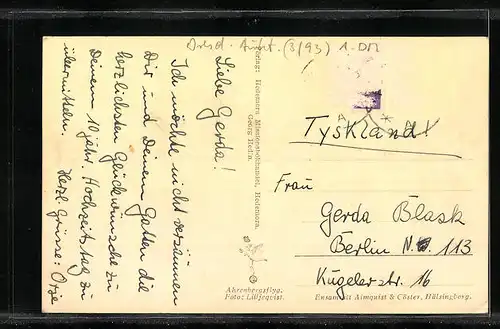 Dresd. Aukt. (3/93) 1.-DM
Liebe Gerda!
Ich möchte nicht versäumen
Dir und Deinem Gatten die
herzlichsten Glückwünsche zu
Deinem 10 jähr. Hochzeitstag zu
übermitteln.
Herzl. Grüsse:
Förlag: Hedemora Missionsbokhandel, Hedemora.
Georg Hedin.
Ahrenbergsflyg.
Foto: Lilljeqvist.
Tyskland
Frau
Gerda Blask
Berlin N. 113
Kügelerstr. 16
Ensamrätt Almquist & Cöster, Hälsingborg.